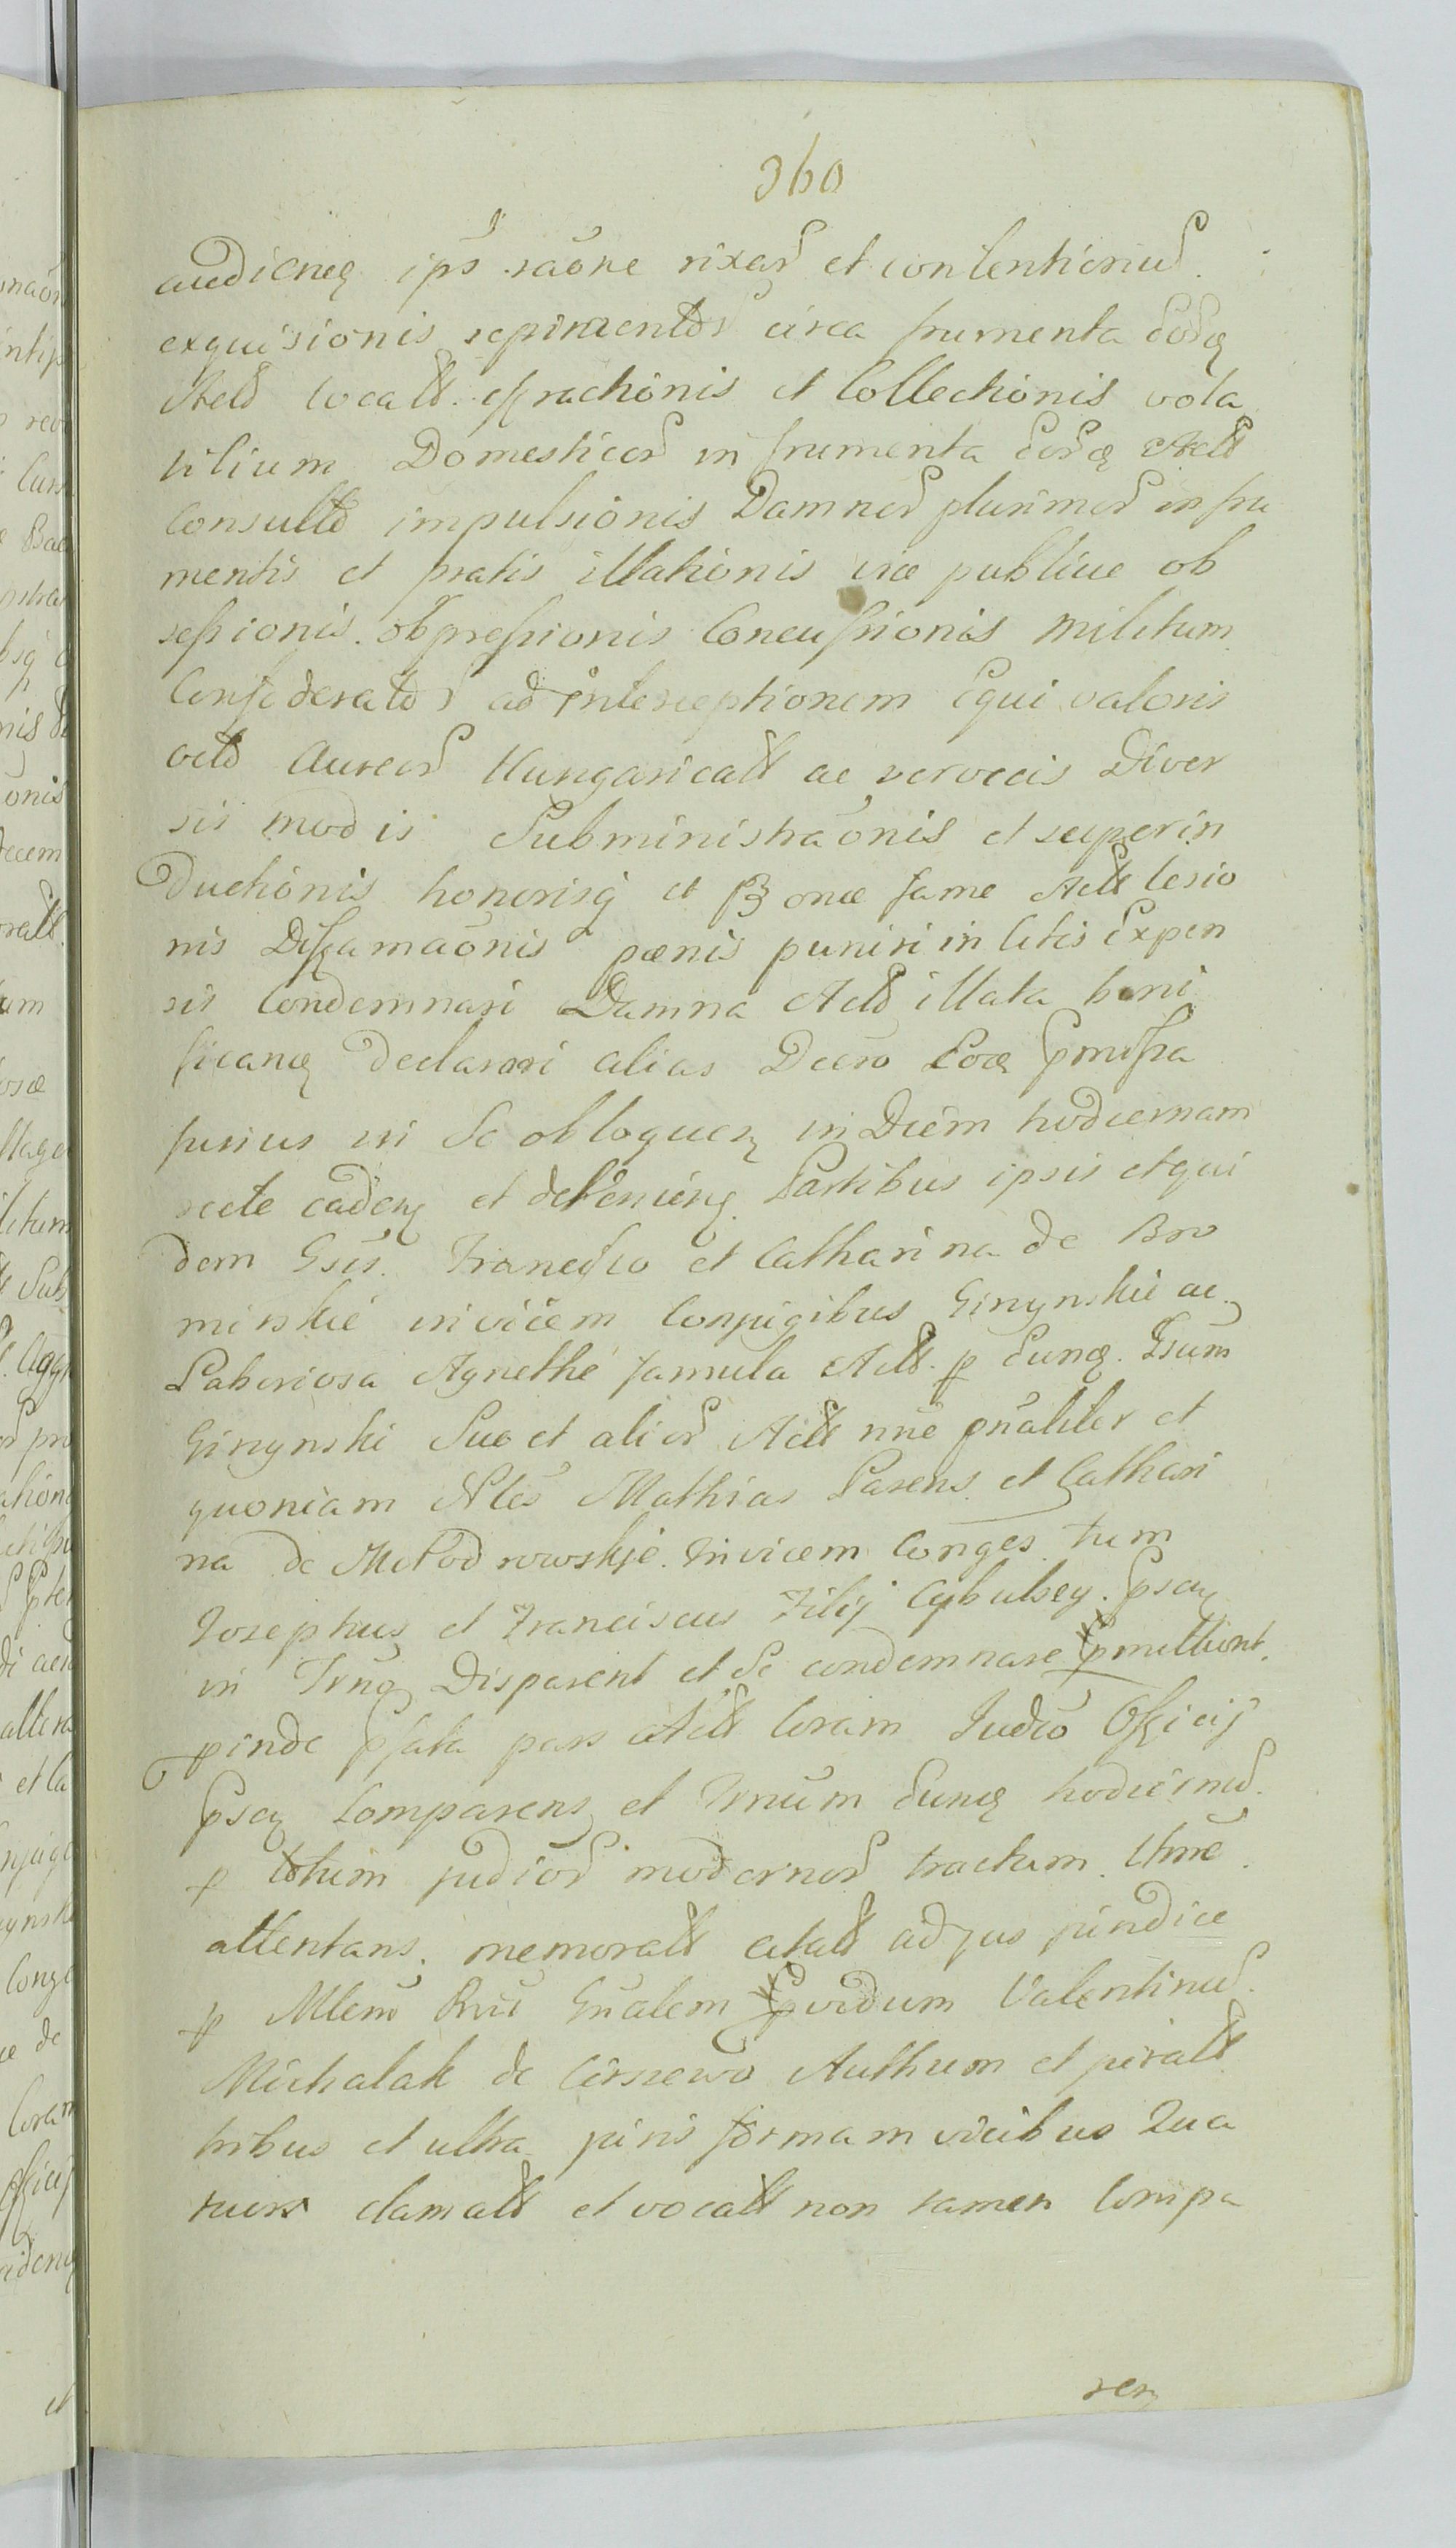 360
audieng ips raõne rixar et contentionu
exquisionis sepimentor circa frumenta eoră
Actt locatt effractionis et Collectionis vola
tilium Domesticor in frumenta eord Actt
Consulto impulsionis Damnor plurimor in fru
mentis et pratis illationis viæ publicæ ob
sessionis obpressionis Concussionis militum
Confoderator ad interceptionem Equi valoris
octo Aureor Hungaricatt ac vervecis Diver
sis modis Subministraõnis et superin
Ductionis honorisq et Bonæ fame Actt lesio
nis Diffamaõnis pœnis puniri in litis Expen
sis Condemnari Damna Actt illata boni
ficang Declarari alias Decro Eoă pmissa
furius in Se obloquen in Diem hodiernam
recte caden et devenieng Partibus ipsis etqui
dem Gsis Francisco et Catharina de Bro
mirskie invicem Conjugibus Ginynskie ac
Laboriosa Agnethe famula Actt p Eunđ Gsum
Ginynski Suo et alior Actt nne pnaliter et
quoniam Nles Mathias Parens et Cathari
na de Młodrowskie Invicem Conges tum
Josephus et Franciscus Filij Cybulscy psen
in Trno Disparent et Se condemnare pmittunt
pinde pfata pars Actt Coram Judio Officij
psen Comparens et Trnum Eund hodiernu
p totum judior modernor tractum ttme
attentans memoratt citatt ad jus jundice
p Mlem Rni Gnalem pvidum Valentinu
Michalak de Cerszewo Authum et juratt
tribus et ultra juris formam vicibus Qua
tuor clamatt et vocatt non tamen Compa
ren